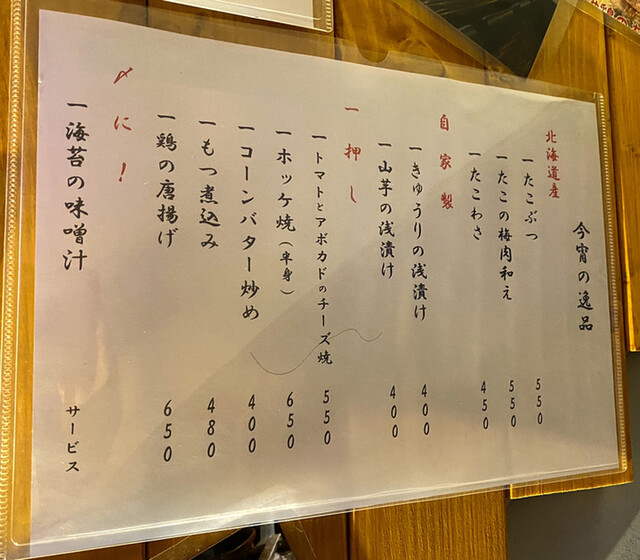 今宵の逸品
北海道産
一たこぶつ 550
一たこの梅肉和え 550
一たこわさ 450
自家製
一きゅうりの浅漬け 400
一山芋の浅漬け 400
一押し
一トマトとアボカドのチーズ焼 550
一ホッケ焼(半身) 650
一コーンバター炒め 400
一もつ煮込み 480
一鶏の唐揚げ 650
〆に!
一海苔の味噌汁 サービス